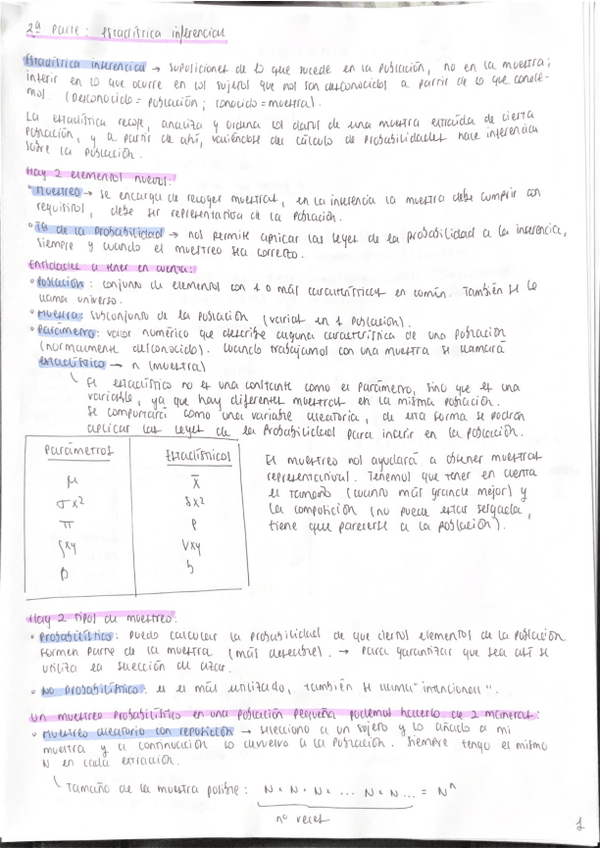 2ª Parte: Estadística inferencial
Estadística inferencial → suposiciones de lo que sucede en la población, no en la muestra;
inferir en lo que ocurre en los sujetos que nos son desconocidos a partir de lo que conoce-
mos. (Desconocido = población; conocido = muestra).
La estadística recoge, analiza y ordena los datos de una muestra extraída de cierta
población, y a partir de ahí, valiéndose del cálculo de probabilidades hace inferencia
sobre la población.
Hay 2 elementos nuevos:
• Muestreo → se encarga de recoger muestras, en la inferencia la muestra debe cumplir con
requisitos, debe ser representativa de la población.
• Tª de la probabilidad → nos permite aplicar las leyes de la probabilidad a la inferencia,
siempre y cuando el muestreo sea correcto.
Entidades a tener en cuenta:
• Población: conjunto de elementos con 1 o más características en común. También se le
llama universo.
• Muestra: subconjunto de la población (varias en 1 población).
• Parámetro: valor numérico que describe alguna característica de una población
(normalmente desconocido). Cuando trabajamos con una muestra se llamará
estadístico → n (muestra)
El estadístico no es una constante como el parámetro, sino que es una
variable, ya que hay diferentes muestras en la misma población.
Se comportará como una variable aleatoria, de esta forma se podrán
aplicar las leyes de la probabilidad para inferir en la población.
Parámetros Estadísticos
μ x̄
σx² sx²
π p
ρxy rxy
β b
El muestreo nos ayudará a obtener muestras
representativas. Tenemos que tener en cuenta
el tamaño (cuanto más grande mejor) y
la composición (no puede estar sesgada,
tiene que parecerse a la población).
Hay 2 tipos de muestreo:
• Probabilístico: puedo calcular la probabilidad de que ciertos elementos de la población
formen parte de la muestra (más deseable). → Para garantizar que sea así se
utiliza la selección al azar.
• No probabilístico: es el más utilizado, también se llama "intencional".
Un muestreo probabilístico en una población pequeña podemos hacerlo de 2 maneras:
• Muestreo aleatorio con reposición → selecciono a un sujeto y lo añado a mi
muestra y a continuación lo devuelvo a la población. Siempre tengo el mismo
N en cada extracción.
Tamaño de la muestra posible: N · N · N · ... N · N ... = Nⁿ
nº veces
1